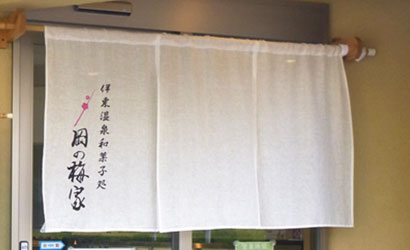 伊東温泉和菓子処
岡の梅家